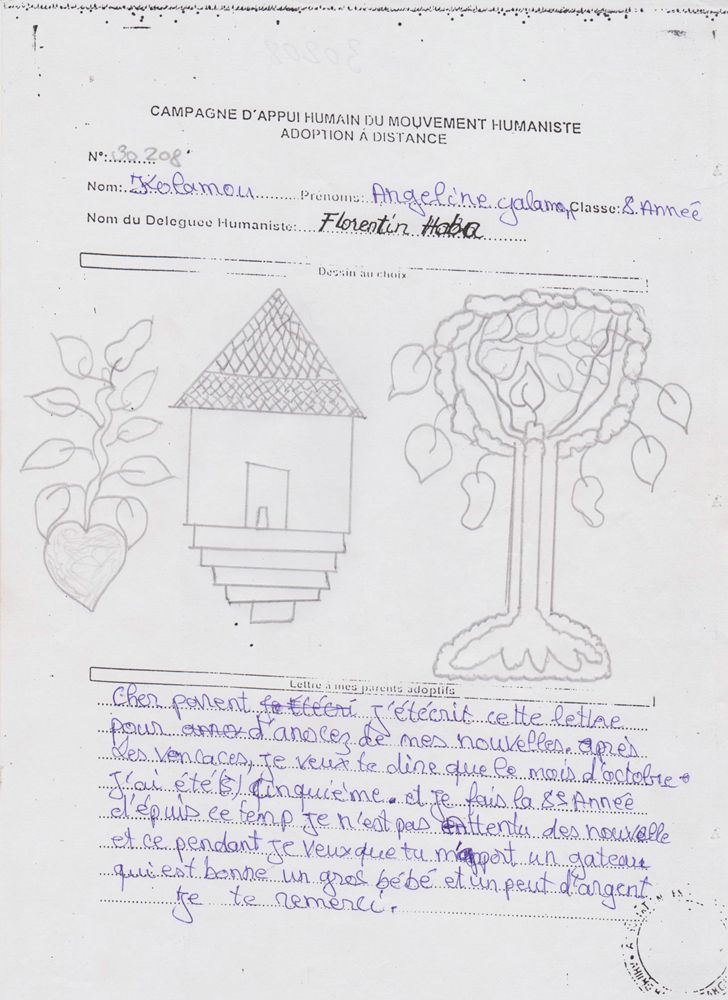 CAMPAGNE D'APPUI HUMAIN DU MOUVEMENT HUMANISTE
ADOPTION À DISTANCE
N°: 30.208
Nom: Kolamou Prénoms: Angeline yalamou Classe: 8. Anneé
Nom du Deleguee Humaniste: Florentin Haba
Dessin au choix
Lettre à mes parents adoptifs
Cher parent j'étécrit cette lettre
pour d'anocez de mes nouvelles. après
des vencaces, je veux te dire que le mois d'octobre
j'ai été (5) Cinquiéme. et je fais la 8e Anneé
d'épuis ce temp je n'est pas enttentu des nouvelle
et ce pendant je veux que tu m'apport un gateau
qui est bonne un gros bébé et un peut d'argent
je te remerci.